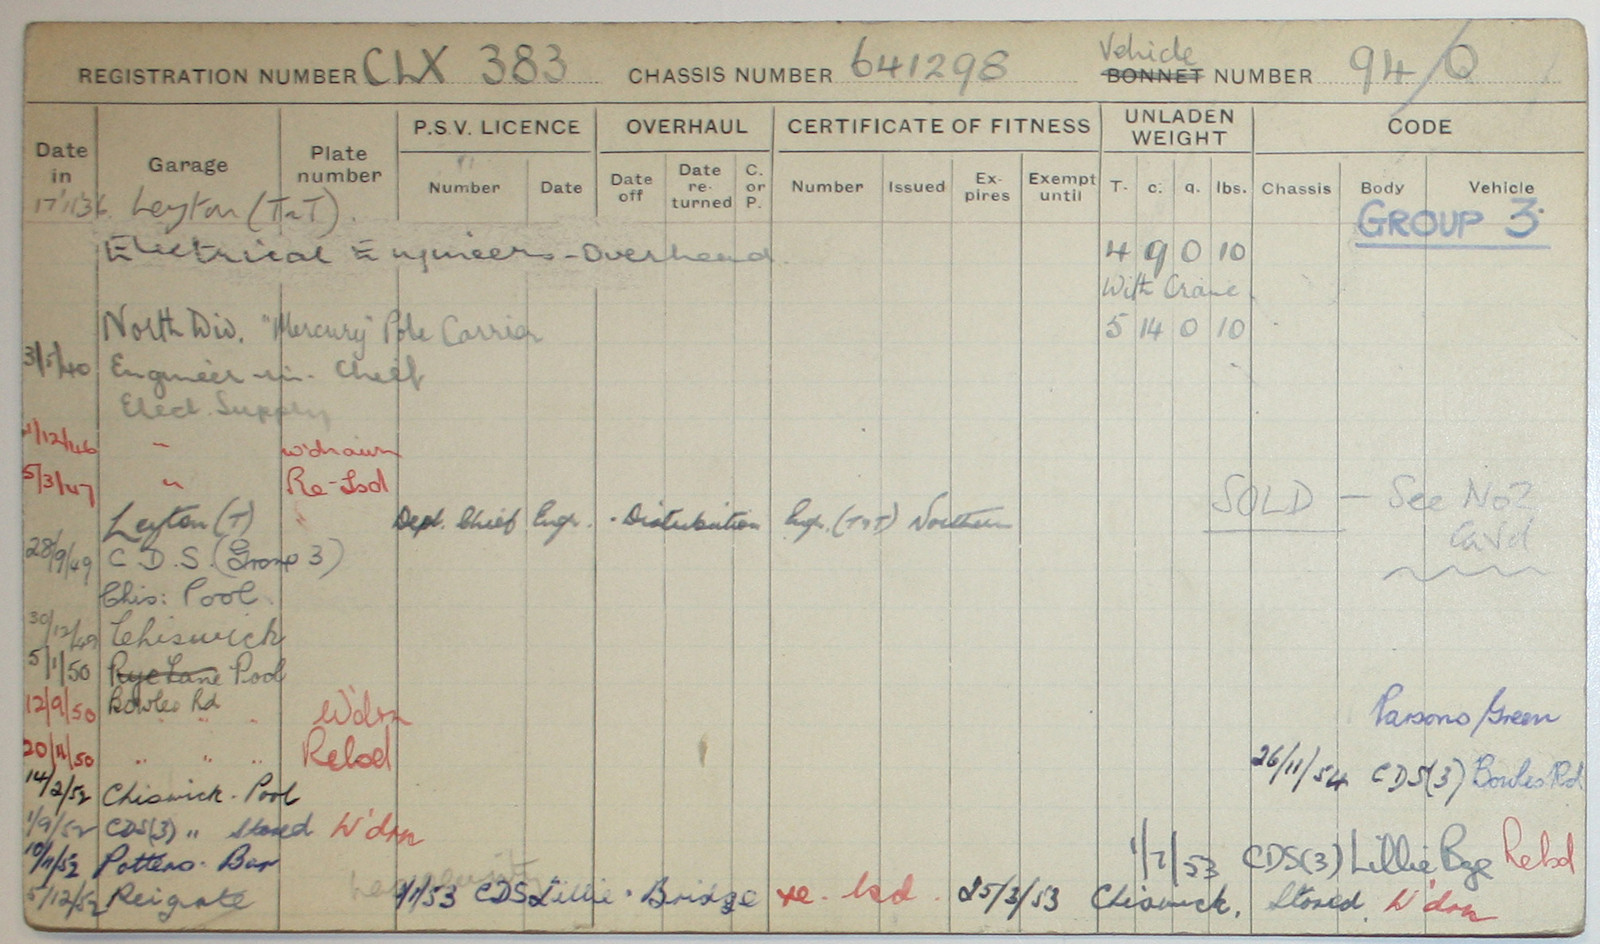 REGISTRATION NUMBER CLX 383 CHASSIS NUMBER 641298 Vehicle BONNET NUMBER 94/Q
Date in Garage Plate number P.S.V. LICENCE OVERHAUL CERTIFICATE OF FITNESS UNLADEN WEIGHT CODE
Number Date Date off Date re-turned C. or P. Number Issued Ex-pires Exempt until T. c. q. lbs. Chassis Body Vehicle
17/1/36 Leyton (T&T).
GROUP 3
Electrical Engineers - Overhead 4 9 0 10
With Crane
North Div. "Mercury" Pole Carrier 5 14 0 10
3/5/40 Engineer-in-Chief
Elect. Supply
1/12/46 " w'drawn
5/3/47 " Re-Lsd
SOLD - See No2 Card
Leyton (T) " Dept. Chief Engr. - Distribution Engr. (T&T) Northern
28/9/49 C.D.S. (Group 3)
Chis: Pool.
30/12/49 Chiswick
5/1/50 Rye Lane Pool
12/9/50 Bowles Rd " " W'drn
Parsons Green
20/11/50 " " " Relsd
26/11/54 CDS(3) Bowles Rd
14/2/52 Chiswick - Pool
1/9/52 CDS(3) " Stored W'drn
10/11/52 Potters - Bar
1/7/53 CDS(3) Lillie Bge Relsd
5/12/52 Reigate 1/1/53 CDS Lillie - Bridge re-lsd. 25/3/53 Chiswick. Stored. W'drn